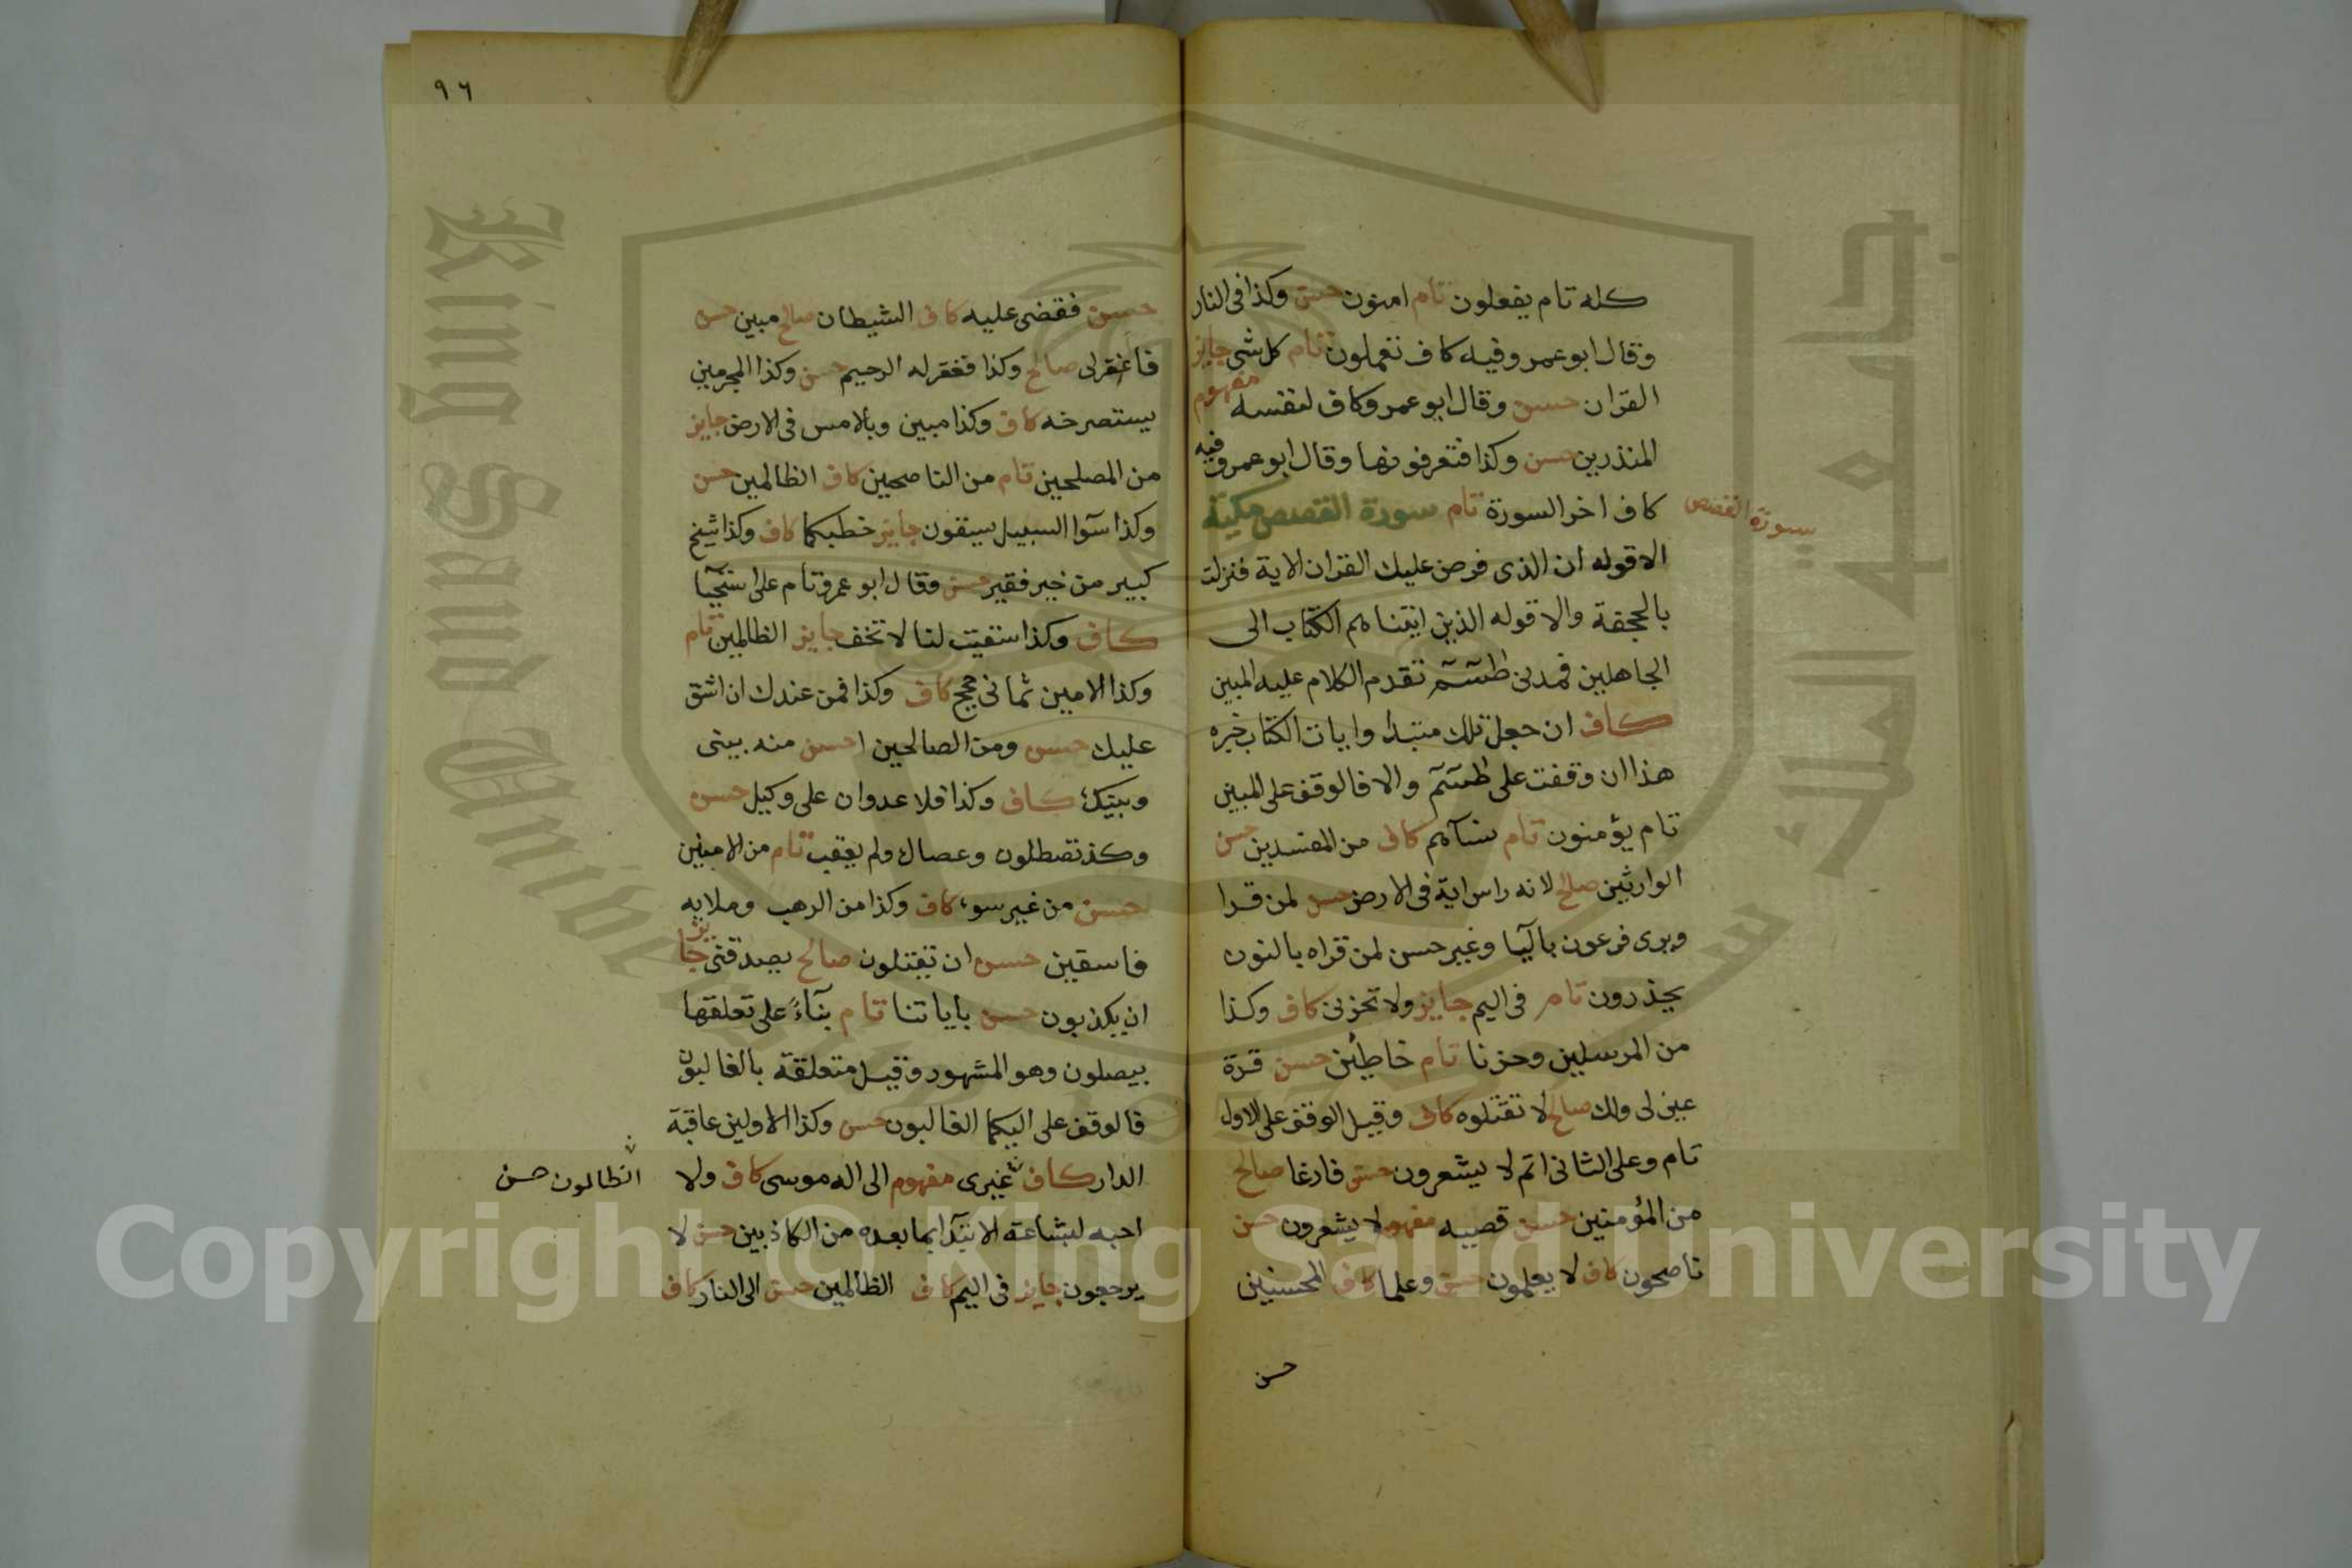 كله تام يفعلون تام امنون حسن وكذا فى النار
وقال ابو عمرو فيه كاف تعملون تام كل شى جايز
القران حسن وقال ابو عمرو كاف لنفسه مفهوم
المنذرين حسن وكذا فتعرفونها وقال ابو عمرو فيه
كاف اخر السورة تام سورة القصص مكية
سورة القصص
الا قوله ان الذى فرض عليك القران الاية فنزلت
بالجحفة والا قوله الذين اتيناهم الكتاب الى
الجاهلين فمدنى طسٓمٓ تقدم الكلام عليه المبين
كاف ان جعل تلك مبتدا وايات الكتاب خبره
هذا ان وقفت على طسٓمٓ والا فالوقف على المبين
تام يؤمنون تام نسآهم كاف من المفسدين حسن
الوارثين صالح لانه راس اية فى الارض حسن لمن قرا
ويرى فرعون باليآ وغير حسن لمن قراه بالنون
يحذرون تام فى اليم جايز ولا تحزنى كاف وكذا
من المرسلين وحزنا تام خاطئين حسن قرة
عين لى ولك صالح لا تقتلوه كاف وقيل الوقف على الاول
تام وعلى الثانى اتم لا يشعرون حسن فارغا صالح
من المؤمنين حسن قصيه مفهوم لا يشعرون حسن
ناصحون كاف لا يعلمون حسن وعلما كاف المحسنين
حسن
٩٦
حسن فقضى عليه كاف الشيطان صالح مبين حسن
فاغفر لى صالح وكذا فغفر له الرحيم حسن وكذا المجرمين
يستصرخه كاف وكذا مبين وبالامس فى الارض جايز
من المصلحين تام من الناصحين كاف الظالمين حسن
وكذا سوآ السبيل يسقون جايز خطبكما كاف وكذا شيخ
كبير من خير فقير حسن وقال ابو عمرو تام على استحيآ
كاف وكذا سقيت لنا لا تخف جايز الظالمين تام
وكذا الامين ثمانى حجج كاف وكذا فمن عندك ان اشق
عليك حسن ومن الصالحين احسن منه بينى
وبينك كاف وكذا فلا عدوان على وكيل حسن
وكذ تصطلون وعصاك ولم يعقب تام من الامنين
حسن من غير سوء كاف وكذا من الرهب وملايه
فاسقين حسن ان يقتلون صالح يصدقنى جايز
ان يكذبون حسن باياتنا تام بنآءً على تعلقها
بيصلون وهو المشهور وقيل متعلقة بالغالبون
فالوقف على اليكما الغالبون حسن وكذا الاولين عاقبة
الدار كاف غيرى مفهوم الى اله موسى كاف ولا
الظالمون حسن
احبه لبشاعة الابتدآ بما بعده من الكاذبين حسن لا
يرجعون جايز فى اليم كاف الظالمين حسن الى النار كاف
King Saud University
جامعة الملك سعود
Copyright © King Saud University